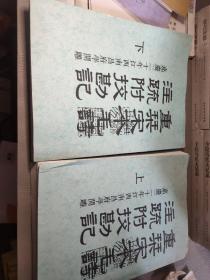 重栞宋本毛詩
注疏附挍勘記
嘉慶二十年江西南昌府學開雕
下
重栞宋本毛詩
注疏附挍勘記
嘉慶二十年江西南昌府學開雕
上